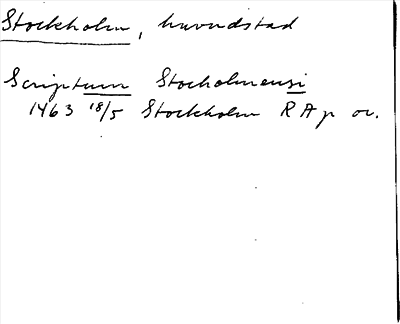 Stockholm, huvudstad
Scriptum Stocholmensi
1463 18/5 Stockholm RA p or.